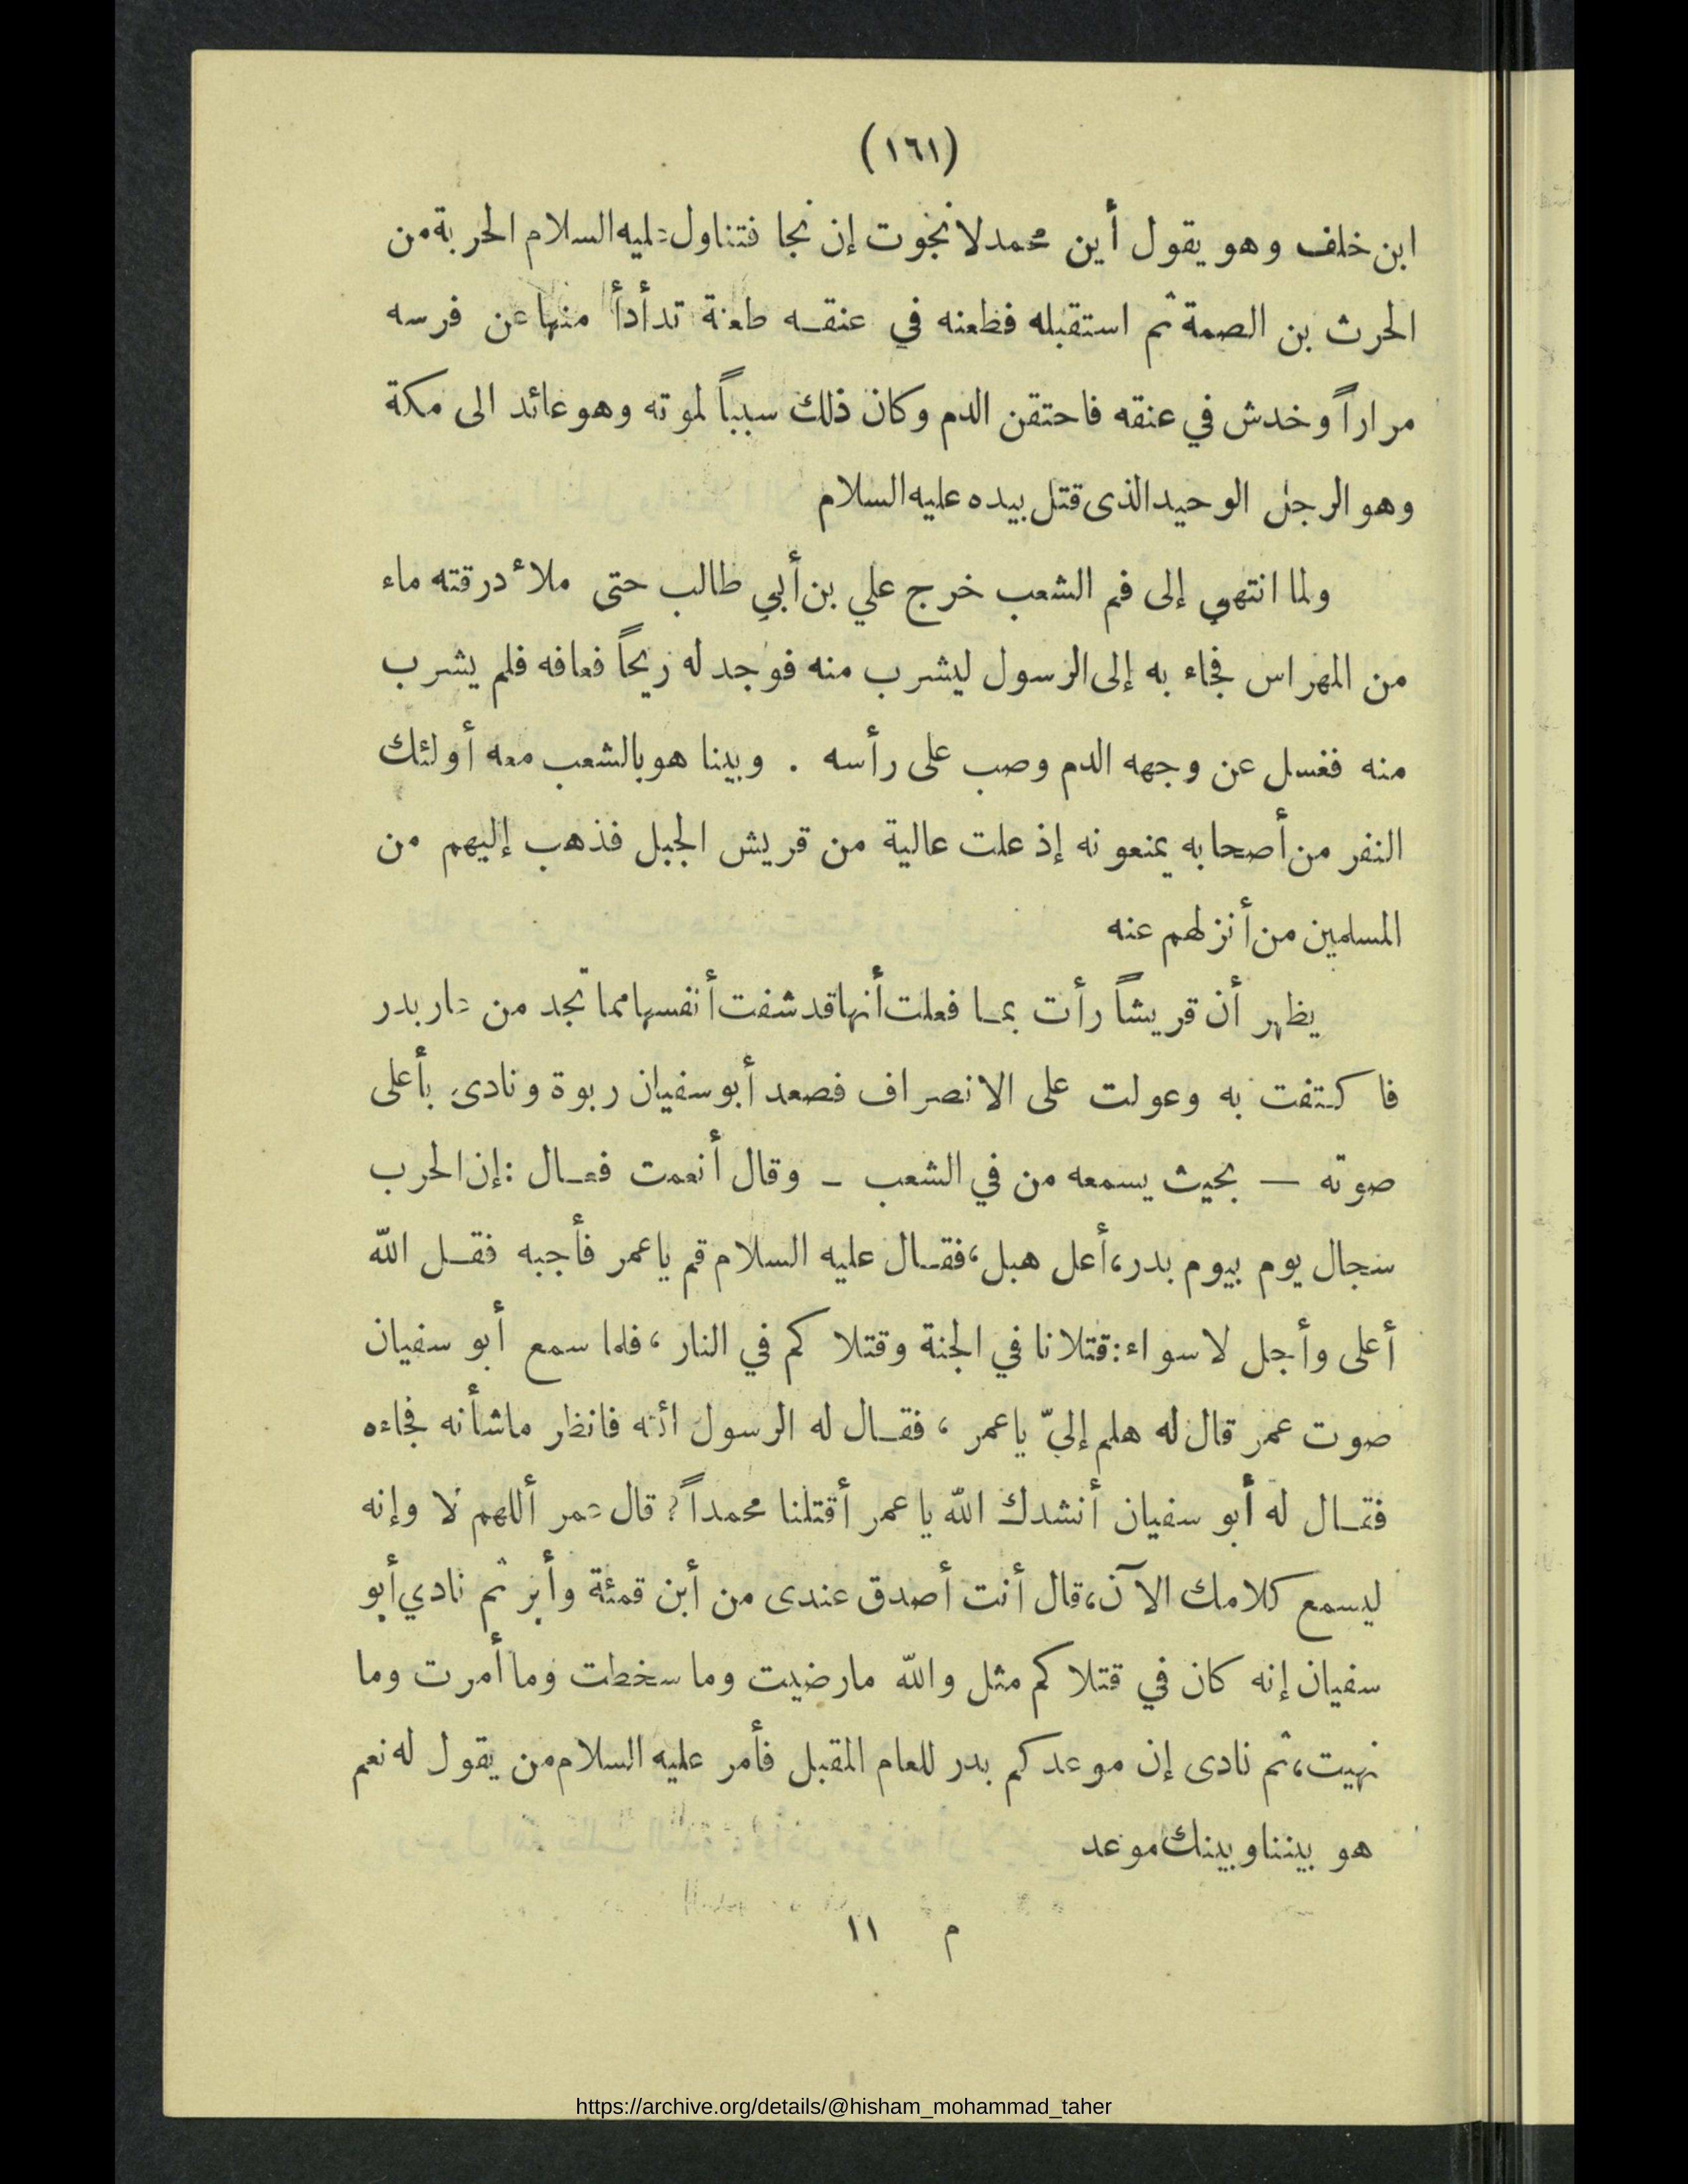 (١٦١)
ابن خلف وهو يقول أين محمد لا نجوت إن نجا فتناول عليه السلام الحربة من
الحرث بن الصمة ثم استقبله فطعنه في عنقه طعنة تدأدأ منها عن فرسه
مراراً وخدش في عنقه فاحتقن الدم وكان ذلك سبباً لموته وهو عائد الى مكة
وهو الرجل الوحيد الذى قتل بيده عليه السلام
ولما انتهي إلى فم الشعب خرج علي بن أبي طالب حتى ملأ درقته ماء
من المهراس فجاء به إلى الرسول ليشرب منه فوجد له ريحاً فعافه فلم يشرب
منه فغسل عن وجهه الدم وصب على رأسه . وبينا هو بالشعب معه أولئك
النفر من أصحابه يمنعونه إذ علت عالية من قريش الجبل فذهب إليهم من
المسلمين من أنزلهم عنه
يظهر أن قريشاً رأت بما فعلت أنها قد شفت أنفسها مما تجد من عار بدر
فاكتفت به وعولت على الانصراف فصعد أبو سفيان ربوة ونادى بأعلى
صوته — بحيث يسمعه من في الشعب – وقال أنعمت فعال : إن الحرب
سجال يوم بيوم بدر، أعل هبل، فقال عليه السلام قم ياعمر فأجبه فقل الله
أعلى وأجل لا سواء: قتلانا في الجنة وقتلاكم في النار، فلما سمع أبو سفيان
صوت عمر قال له هلم إليّ ياعمر ، فقال له الرسول ائته فانظر ماشأنه فجاءه
فقال له أبو سفيان أنشدك الله يا عمر أقتلنا محمداً ؟ قال عمر أللهم لا وإنه
ليسمع كلامك الآن، قال أنت أصدق عندى من أبن قمئة وأبر ثم نادي أبو
سفيان إنه كان في قتلاكم مثل والله مارضيت وما سخطت وما أمرت وما
نهيت، ثم نادى إن موعدكم بدر للعام المقبل فأمر عليه السلام من يقول له نعم
هو بيننا وبينك موعد
م ١١
https://archive.org/details/@hisham_mohammad_taher